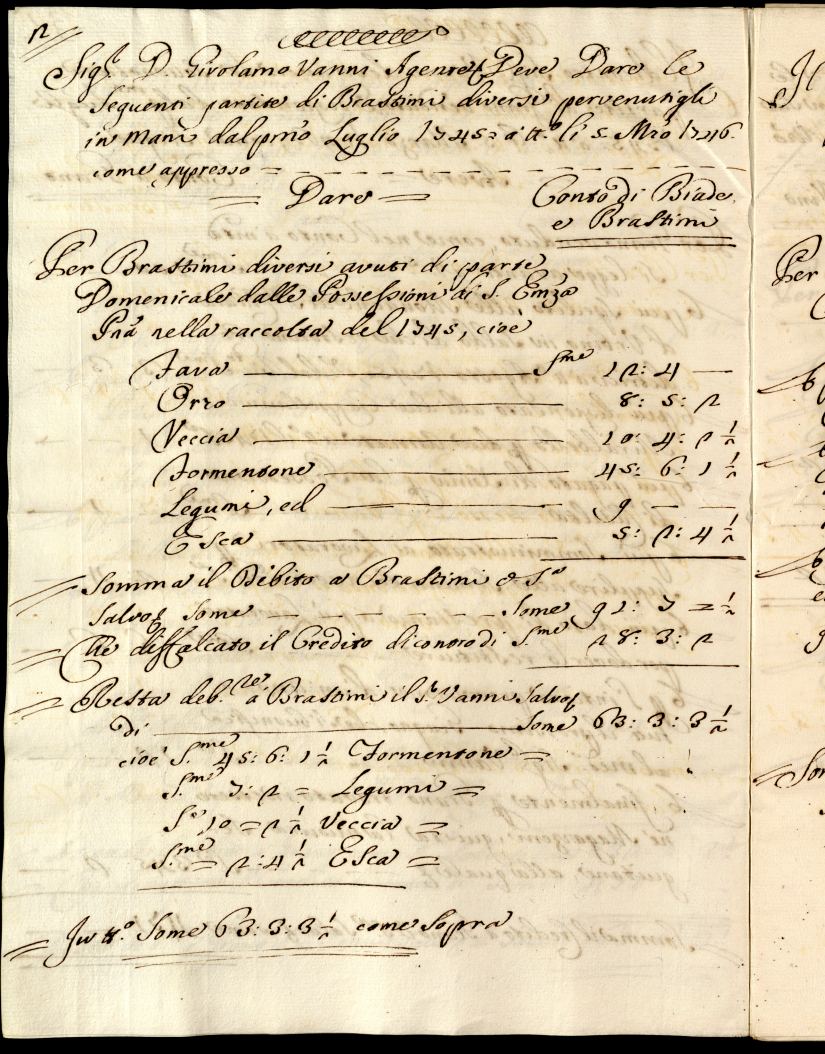 12
Sig.r D. Girolamo Vanni Agente Deve Dare le
Seguenti partite di Brastimi diversi pervenutigli
in Mani dal pmo Luglio 1745 = a tt.o li 5 Mzo 1746.
come appresso =
= Dare =
Conto di Biade
e Brastimi
Per Brastimi diversi avuti di parte
Domenicale dalle Possessioni di S. Emza
Pná nella raccolta del 1745, cioè
Fava S.me 12: 4 —
Orzo 8: 5: 2
Veccia 10: 4: 2 ½
Formentone 45: 6: 1 ½
Legumi, ed 9 — —
Esca 5: 2: 4 ½
Somma il Debito a Brastimi
Salvo Some Some 91: 7 = ½
Che diffalcato il Credito di contro di S.me 28: 3: 2
Resta deb.re a Brastimi il S.r Vanni Salvo
di Some 63: 3: 3 ½
cioè S.me 45: 6: 1 ½ Formentone =
S.me 7: 2 = Legumi =
S.e 10 = 2 ½ Veccia =
S.me = 2: 4 ½ Esca =
In tt.o Some 63: 3: 3 ½ come Sopra
Il
Per